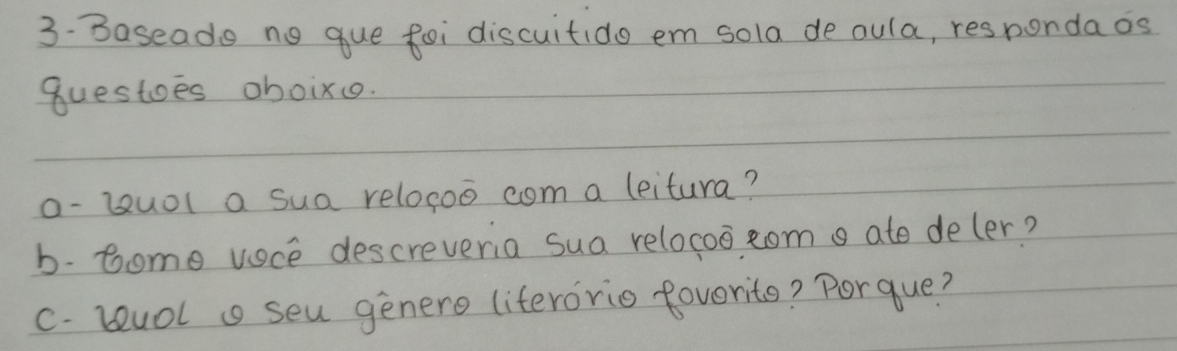 3-Baseado no que foi discuitido em sala de aula, responda as
questões abaixo.
a- Qual a sua relação com a leitura?
b- Como você descreveria sua relação com o ato de ler?
c- Qual o seu gênero literário favorito? Por que?